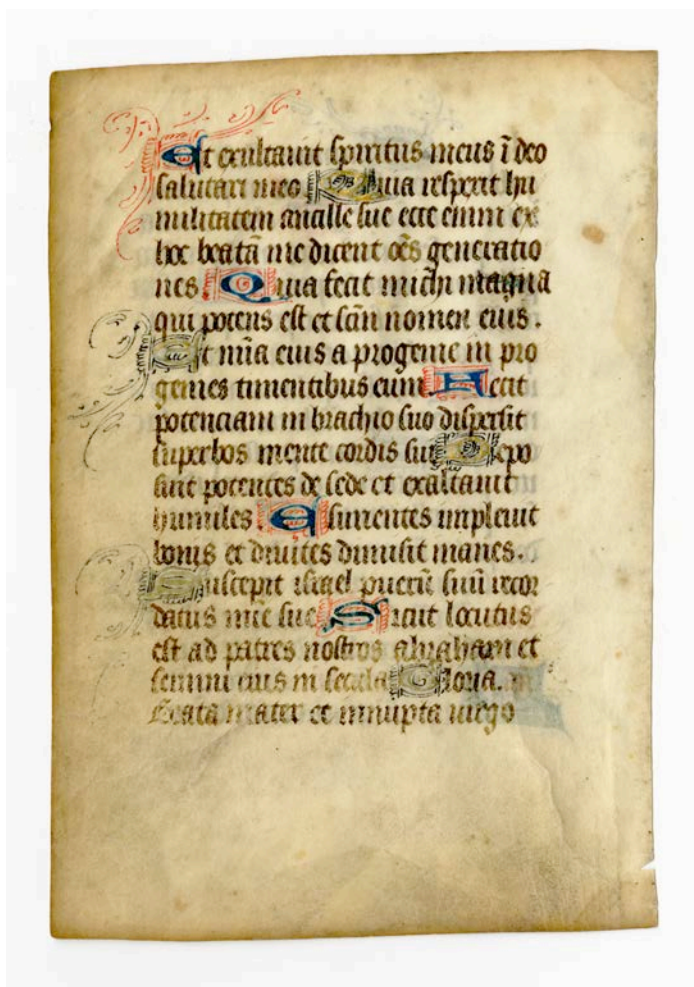 Et exultauit spiritus meus ī deo
salutari meo Quia respexit hu
militatem ancille sue ecce enim ex
hoc beatā me dicent oēs generatio
nes. Quia fecit michi magna
qui potens est et sc̄m nomen eius.
Et mīa eius a progenie in pro
genies timentibus eum. Fecit
potenciam in brachio suo dispersit
superbos mente cordis sui Depo
suit potentes de sede et exaltauit
humiles. Esurientes impleuit
bonis et diuites dimisit inanes.
Suscepit israel puerū suū recor
datus mīe sue Sicut locutus
est ad patres nostros abraham et
semini eius in secula Gloria.
Beata mater et innupta uirgo